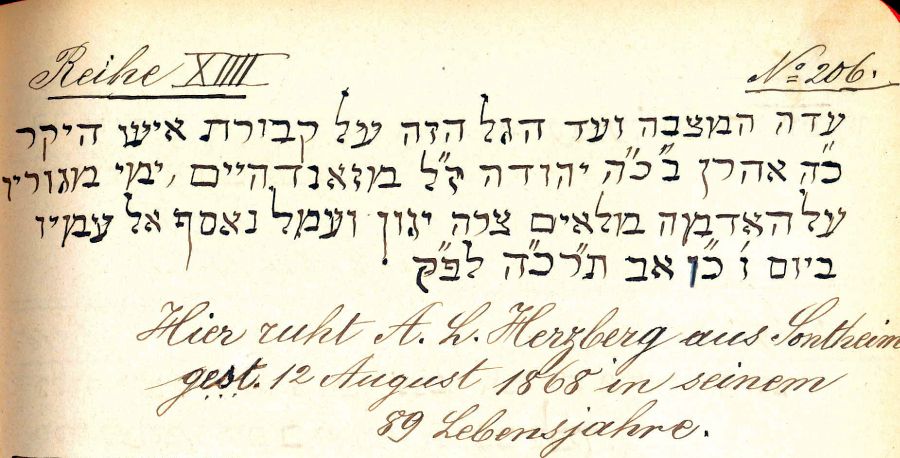 Reihe XIIII
No. 206.
עדה המצבה ועד הגל הזה על קבורת איש היקר
כ"ה אהרן ב"כ"ה יהודה ז"ל מזאנדהיים, ימי מגורין
על האדמה מלאים צרה יגון ועמל נאסף אל עמיו
ביום ו' כ"ן אב ת"רכ"ה לפ"ק
Hier ruht A. L. Herzberg aus Sontheim
gest. 12 August 1868 in seinem
89 Lebensjahre.